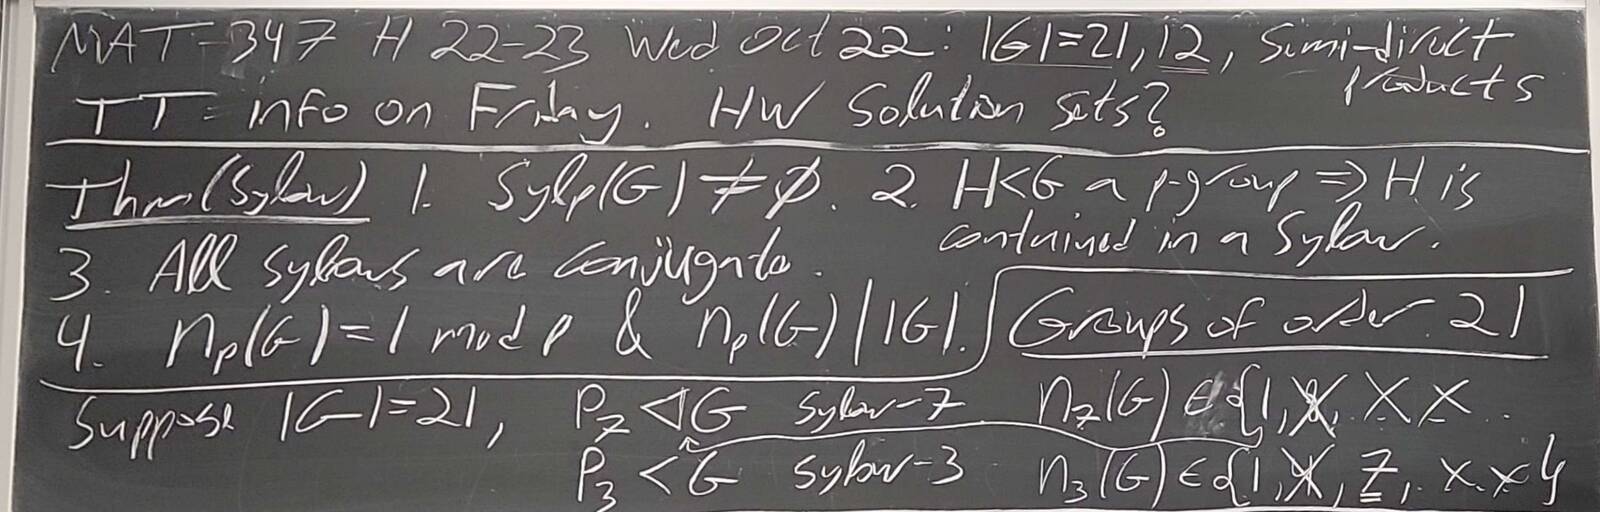 MAT-347 H 22-23 Wed Oct 22: |G|=21, 12, Simi-direct products
TT = info on Friday. HW Solution sets?
Thm (Sylow) 1. Sylp(G) ≠ ∅. 2. H<G a p-group ⇒ H is contained in a Sylow.
3. All sylows are conjugate.
4. np(G)=1 mod p & np(G) | |G|.
Groups of order 21
Suppose |G|=21, P7 ◁ G sylow-7 n7(G) ∈ {1, X, X X ..
P3 < G sylow-3 n3(G) ∈ {1, X, 7, x, x}